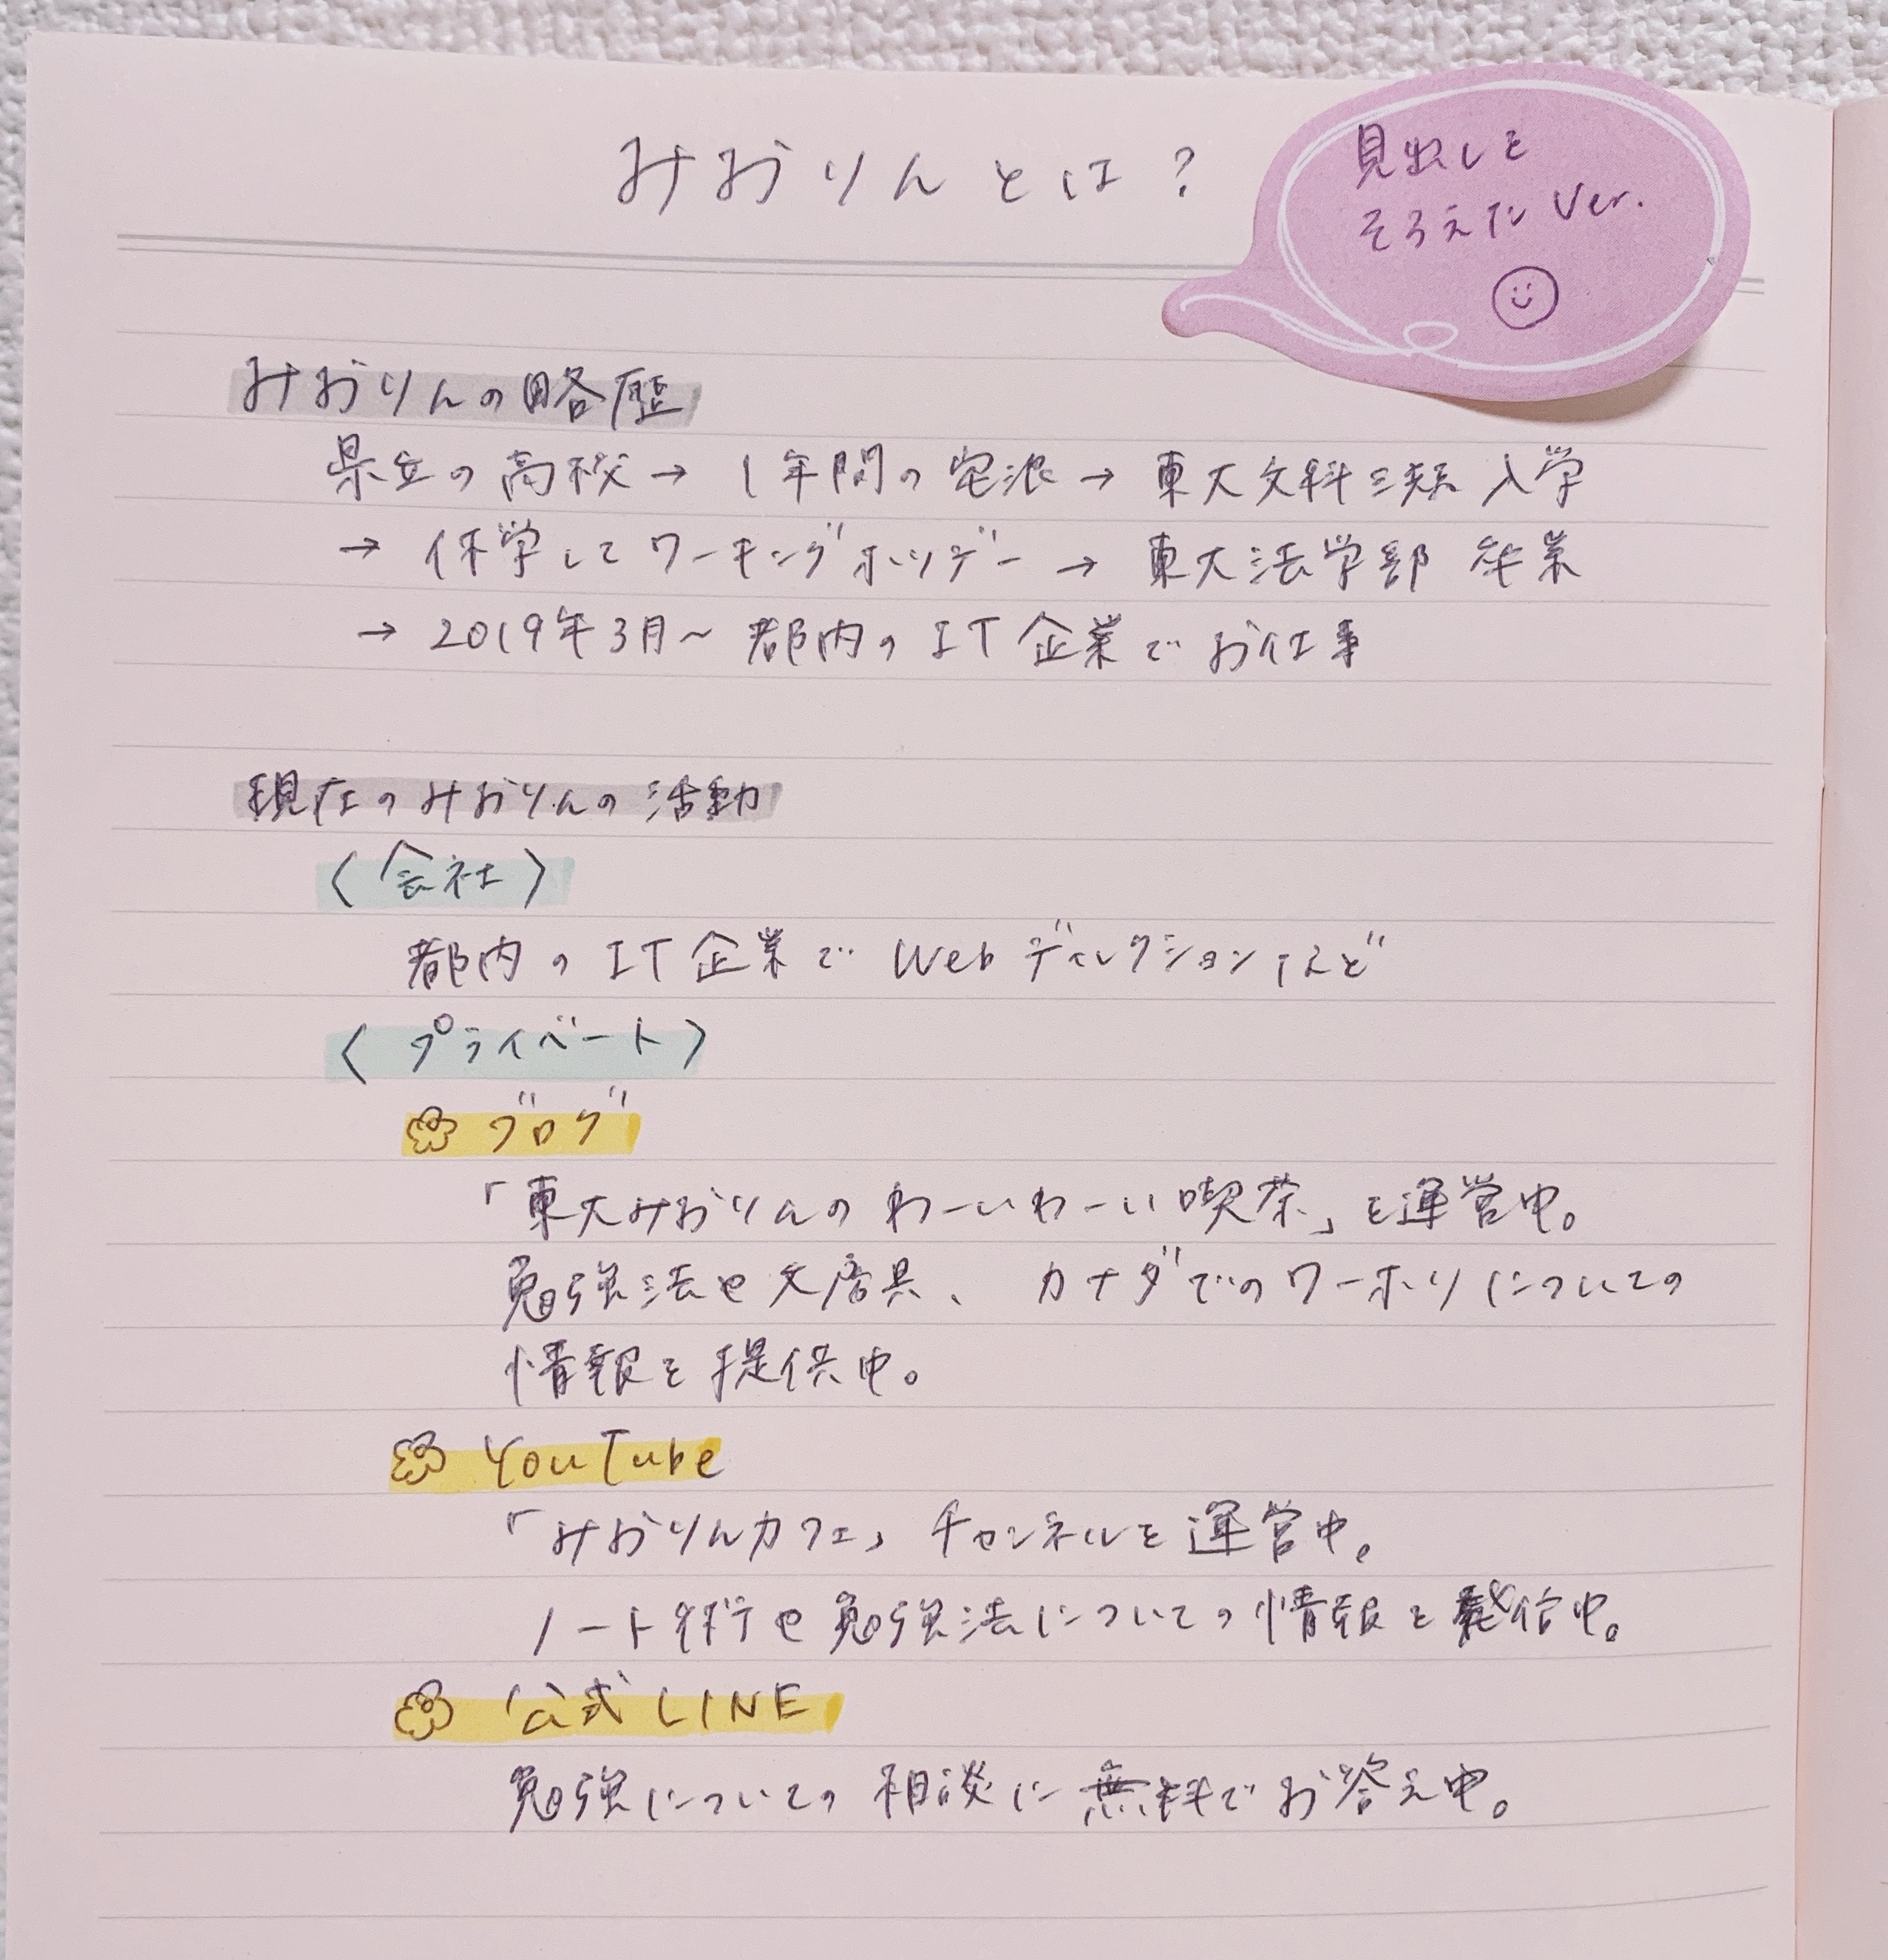 みおりんとは?
見出しを
そろえた Ver.
みおりんの略歴
県立の高校→1年間の宅浪→東大文科三類 入学
→休学してワーキングホリデー→東大法学部 卒業
→2019年3月〜都内のIT企業でお仕事
現在のみおりんの活動
〈会社〉
都内のIT企業でWebディレクションなど
〈プライベート〉
ブログ
「東大みおりんのわーいわーい喫茶」を運営中。
勉強法や文房具、カナダでのワーホリについての
情報を提供中。
YouTube
「みおりんカフェ」チャンネルを運営中。
ノート術や勉強法についての情報を発信中。
公式LINE
勉強についての相談に無料でお答え中。